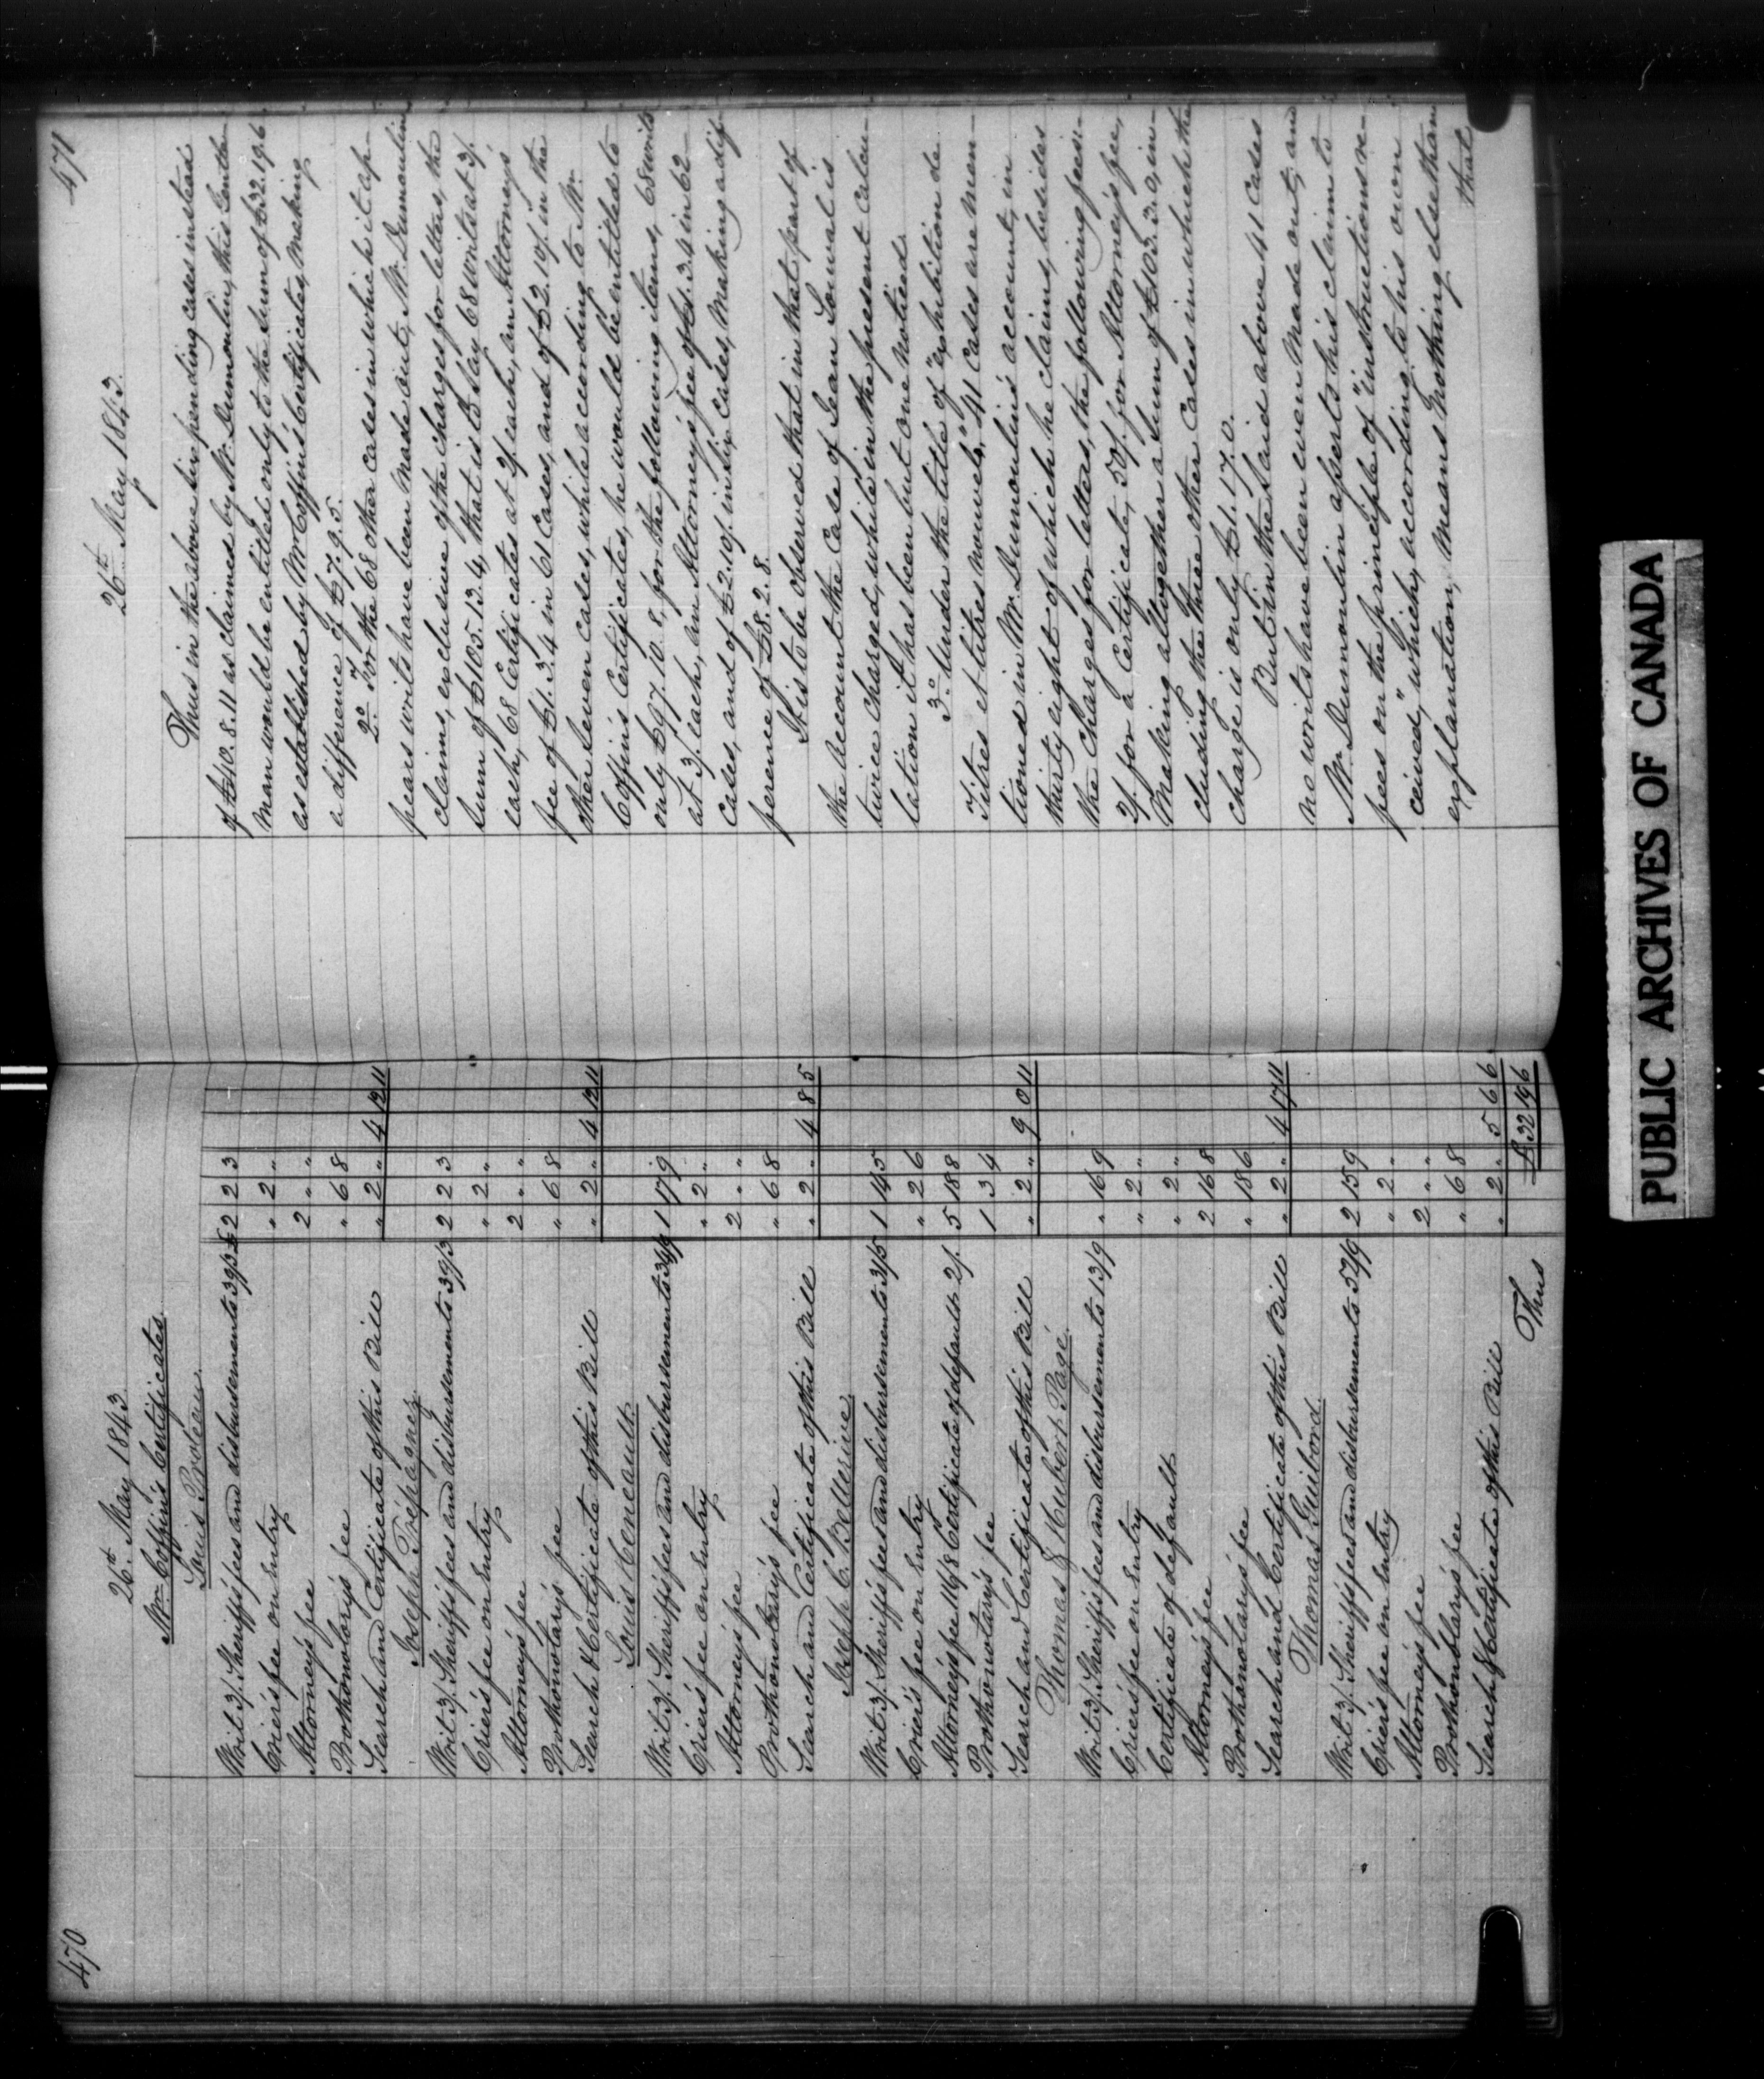 470
26th May 1843.
Mr. Coffin's Certificates.
Louis Proleau.
Writ 3/. Sheriff's fees and disbursements 39/3 £ 2 2 3
Crier's fee on entry " 2 "
Attorney's fee 2 " "
Prothonotary's fee " 6 8
Search and Certificate of this Bill " 2 " 4 12 11
Joseph Trépagnez.
Writ 3/. Sheriff's fees and disbursements 39/3 2 2 3
Crier's fee on entry " 2 "
Attorney's fee 2 " "
Prothonotary's fee " 6 8
Search & Certificate of this Bill " 2 " 4 12 11
Louis Geneault.
Writ 3/. Sheriff's fees and disbursements 34/9 1 17 9
Crier's fee on entry " 2 "
Attorney's fee 2 " "
Prothonotary's fee " 6 8
Search and Certificate of this Bill " 2 " 4 8 5
Joseph C. Bellerive.
Writ 3/. Sheriff's fees and disbursements 31/5 1 14 5
Crier's fee on entry " 2 6
Attorney's fee 116/8 Certificate of default 2/. 5 18 8
Prothonotary's fee 1 3 4
Search and Certificate of this Bill " 2 " 9 0 11
Thomas & Hubert Pagé.
Writ 3/. Sheriff's fees and disbursements 13/9 " 16 9
Crier's fee on entry " 2 "
Certificate of default " 2 "
Attorney's fee 2 16 8
Prothonotary's fee " 18 6
Search and Certificate of this Bill " 2 " 4 17 11
Thomas Guibord.
Writ 3/. Sheriff's fees and disbursements 52/9 2 15 9
Crier's fee on entry " 2 "
Attorney's fee 2 " "
Prothonotary's fee " 6 8
Search & Certificate of this Bill " 2 " 5 6 6
£ 32 19 6
Thus
471
26th May 1843.
Thus in the above six pending cases instead
of £40.8.11 as claimed by Mr. Dumoulin, this Gentle-
man would be entitled only to the sum of £32.19.6
as established by Mr Coffin's Certificates, making
a difference of £7.9.5.
2o For the 68 other cases in which it ap-
pears writs have been made out, Mr. Dumoulin
claims, exclusive of the charges for letters, the
sum of £105.13.4, that is to say 68 writs at 3/.
each, 68 Certificates at 2/. each, an Attorney's
fee of £1.3.4 in 61 Cases, and of £2.10/. in the
other seven cases, while according to Mr.
Coffin's Certificates, he would be entitled to
only £97.10.8, for the following items, 68 writs
at 3/. each, an Attorney's fee of £1.3.4 in 62
Cases, and of £2.10/. in six Cases, making a dif-
ference of £8.2.8.
It is to be observed that in that part of
the account the Case of Jean Lonval is
twice charged, while in the present calcu-
lation it has been but one noticed.
3o Under the title of "exhibition de
Titres et titres nouvels," 41 Cases are men-
tioned in Mr. Dumoulin's account, in
thirty eight of which he claims, besides
the Charges for letters, the following fees:-
2/. for a Certificate, 50/. for Attorney's fee,
making altogether a sum of £103.3.0, in-
cluding the three other Cases in which the
charge is only £1.17.0.
But in the said above 41 Cases
no writs have been even made out, and
Mr. Dumoulin asserts his claim to
fees on the principle of "instructions re-
ceived," which, according to his own
explanation, means nothing else than
that
PUBLIC ARCHIVES OF CANADA